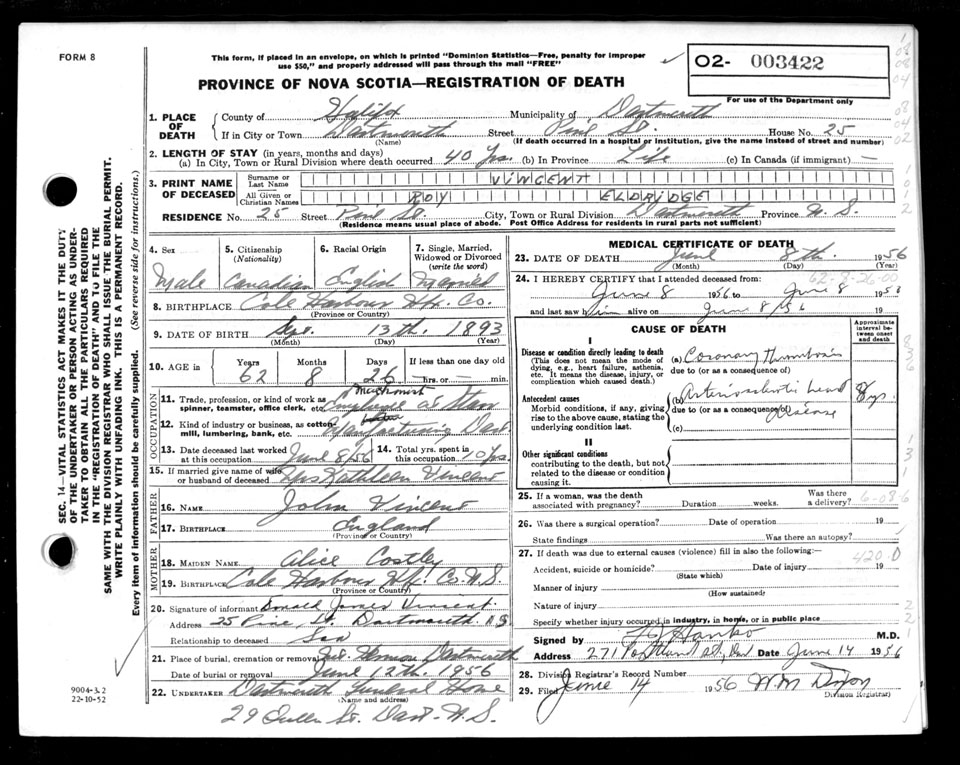 FORM 8
This form, if placed in an envelope, on which is printed "Dominion Statistics—Free, penalty for improper
use $50," and properly addressed will pass through the mail "FREE"
PROVINCE OF NOVA SCOTIA—REGISTRATION OF DEATH
O2- 003422
For use of the Department only
1. PLACE OF DEATH
County of Halifax Municipality of Dartmouth
If in City or Town Dartmouth Street Pine St. House No. 25
(Name) (If death occurred in a hospital or institution, give the name instead of street and number)
2. LENGTH OF STAY (in years, months and days)
(a) In City, Town or Rural Division where death occurred 40 Yrs. (b) In Province Life (c) In Canada (if immigrant) —
3. PRINT NAME OF DECEASED
Surname or Last Name VINCENT
All Given or Christian Names ROY ELDRIDGE
RESIDENCE No. 25 Street Pine St. City, Town or Rural Division Dartmouth Province N.S.
(Residence means usual place of abode. Post Office Address for residents in rural parts not sufficient)
4. Sex
Male
5. Citizenship (Nationality)
Canadian
6. Racial Origin
English
7. Single, Married, Widowed or Divorced (write the word)
Married
8. BIRTHPLACE Cole Harbour Hfx. Co.
(Province or Country)
9. DATE OF BIRTH Sept. 13th. 1893
(Month) (Day) (Year)
10. AGE
Years Months Days If less than one day old
62 8 26 —hrs. or —min.
OCCUPATION
11. Trade, profession, or kind of work as spinner, teamster, office clerk, etc. Machinist Employee at
12. Kind of industry or business, as cotton-mill, lumbering, bank, etc. Manufacturing Dart.
13. Date deceased last worked at this occupation June 8/56
14. Total yrs. spent in this occupation Yrs.
15. If married give name of wife or husband of deceased Mrs Kathleen Vincent
FATHER
16. NAME John Vincent
17. BIRTHPLACE England
(Province or Country)
MOTHER
18. MAIDEN NAME Alice Costley
19. BIRTHPLACE Cole Harbour Hfx. Co. N.S.
(Province or Country)
20. Signature of informant Donald James Vincent.
Address 25 Pine St. Dartmouth N.S.
Relationship to deceased Son
21. Place of burial, cremation or removal Dartmouth
Date of burial or removal June 12th. 1956
22. UNDERTAKER Dartmouth Funeral Home
(Name and address)
29 Queen St. Dart. N.S.
MEDICAL CERTIFICATE OF DEATH
23. DATE OF DEATH June 8th. 1956
(Month) (Day) (Year)
24. I HEREBY CERTIFY that I attended deceased from:
62-8-26
June 8 1956 to June 8 1956
and last saw him alive on June 8/56 19
CAUSE OF DEATH
Approximate interval between onset and death
I
Disease or condition directly leading to death
(This does not mean the mode of dying, e.g., heart failure, asthenia, etc. It means the disease, injury, or complication which caused death.)
(a) Coronary Thrombosis
due to (or as a consequence of)
Antecedent causes
Morbid conditions, if any, giving rise to the above cause, stating the underlying condition last.
(b) Arteriosclerotic heart disease yrs.
due to (or as a consequence of)
(c)
II
Other significant conditions
contributing to the death, but not related to the disease or condition causing it.
25. If a woman, was the death associated with pregnancy? Duration weeks. Was there a delivery?
26. Was there a surgical operation? Date of operation 19
State findings Was there an autopsy?
27. If death was due to external causes (violence) fill in also the following:—
420.0
Accident, suicide or homicide? Date of injury 19
(State which)
Manner of injury
(How sustained)
Nature of injury
Specify whether injury occurred in industry, in home, or in public place
Signed by M.D.
Address 271 Portland St., Dart Date June 14 1956
28. Division Registrar's Record Number
29. Filed June 14 1956 W.M. Dixon
(Division Registrar)
SEC. 14—VITAL STATISTICS ACT MAKES IT THE DUTY
OF THE UNDERTAKER OR PERSON ACTING AS UNDER-
TAKER TO OBTAIN ALL THE PARTICULARS REQUIRED
IN THE "REGISTRATION OF DEATH" AND TO FILE THE
SAME WITH THE DIVISION REGISTRAR WHO SHALL ISSUE THE BURIAL PERMIT.
WRITE PLAINLY WITH UNFADING INK. THIS IS A PERMANENT RECORD.
Every item of information should be carefully supplied. (See reverse side for instructions.)
9004-3.2
22-10-52